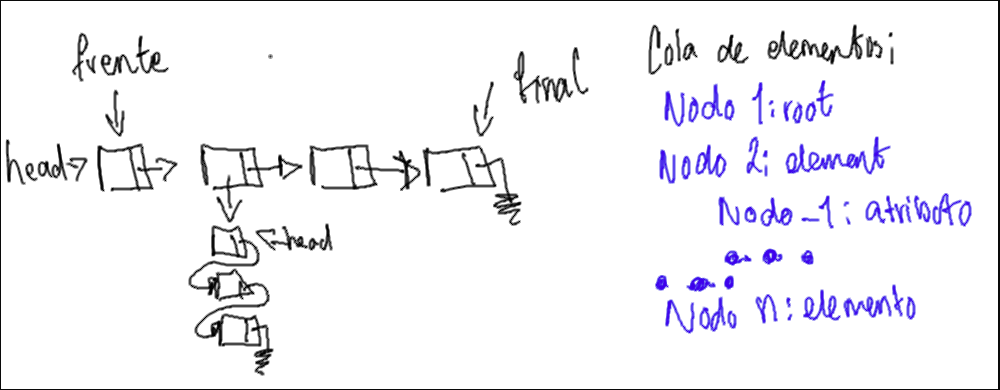 frente
final
head
head
Cola de elementos:
Nodo 1: root
Nodo 2: element
Nodo_1: atributo
Nodo n: elemento